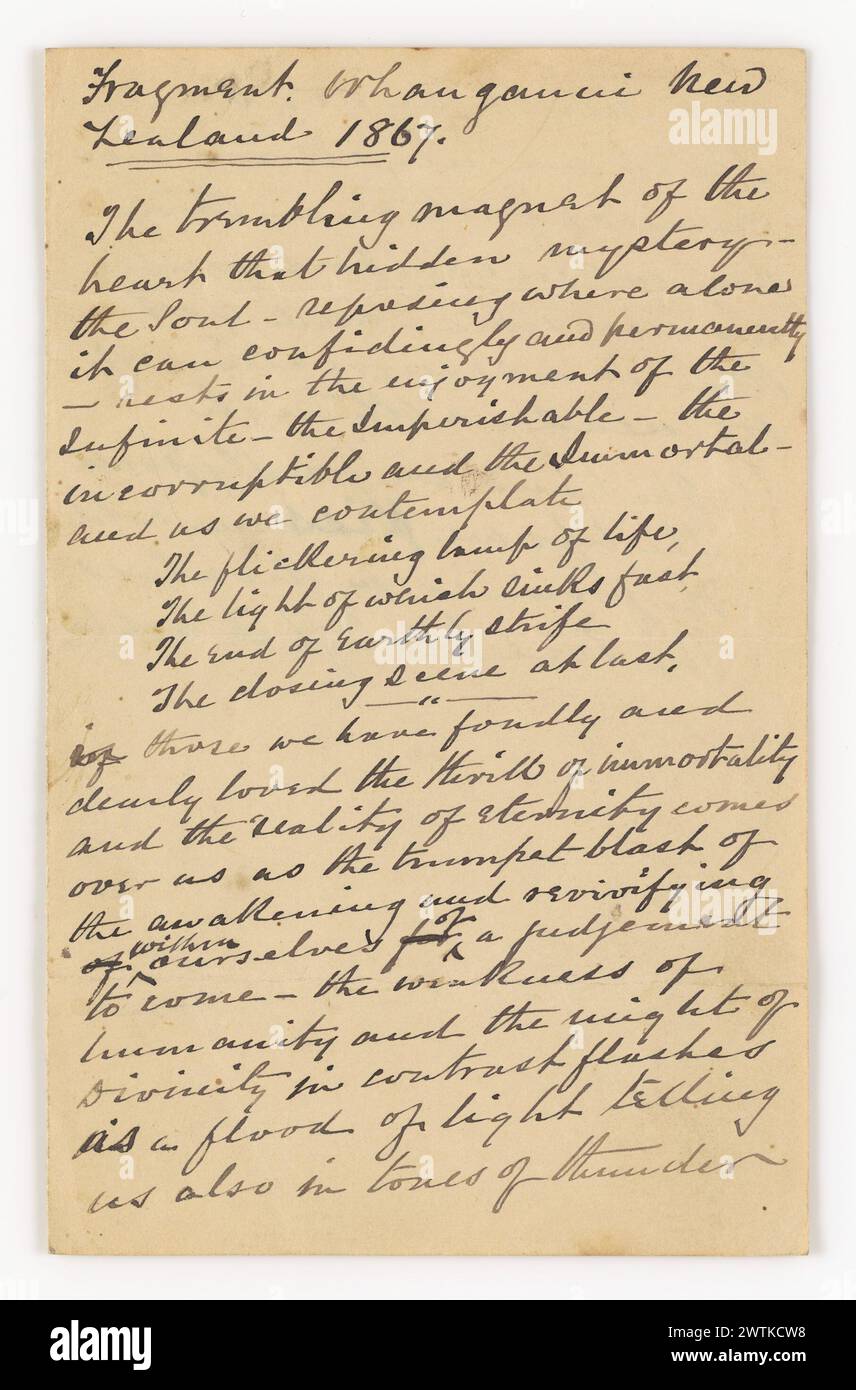 Fragment. Whanganui New
Zealand 1867.
The trembling magnet of the
heart that hidden mystery -
the Soul - reposing where alone
it can confidingly and permanently
- rests in the enjoyment of the
Infinite - the Imperishable - the
incorruptible and the Immortal -
and as we contemplate
The flickering lamp of life,
The light of which sinks fast,
The End of Earthly strife
The closing scene at last,
— " —
of those we have fondly and
dearly loved the thrill of immortality
and the reality of Eternity comes
over us as the trumpet blast of
the awakening and revivifying
of within ourselves for of a judgement
to come - the weakness of
humanity and the might of
Divinity in contrast flashes
as a flood of light telling
us also in tones of thunder
alamy
Image ID: 2WTKCW8
www.alamy.com